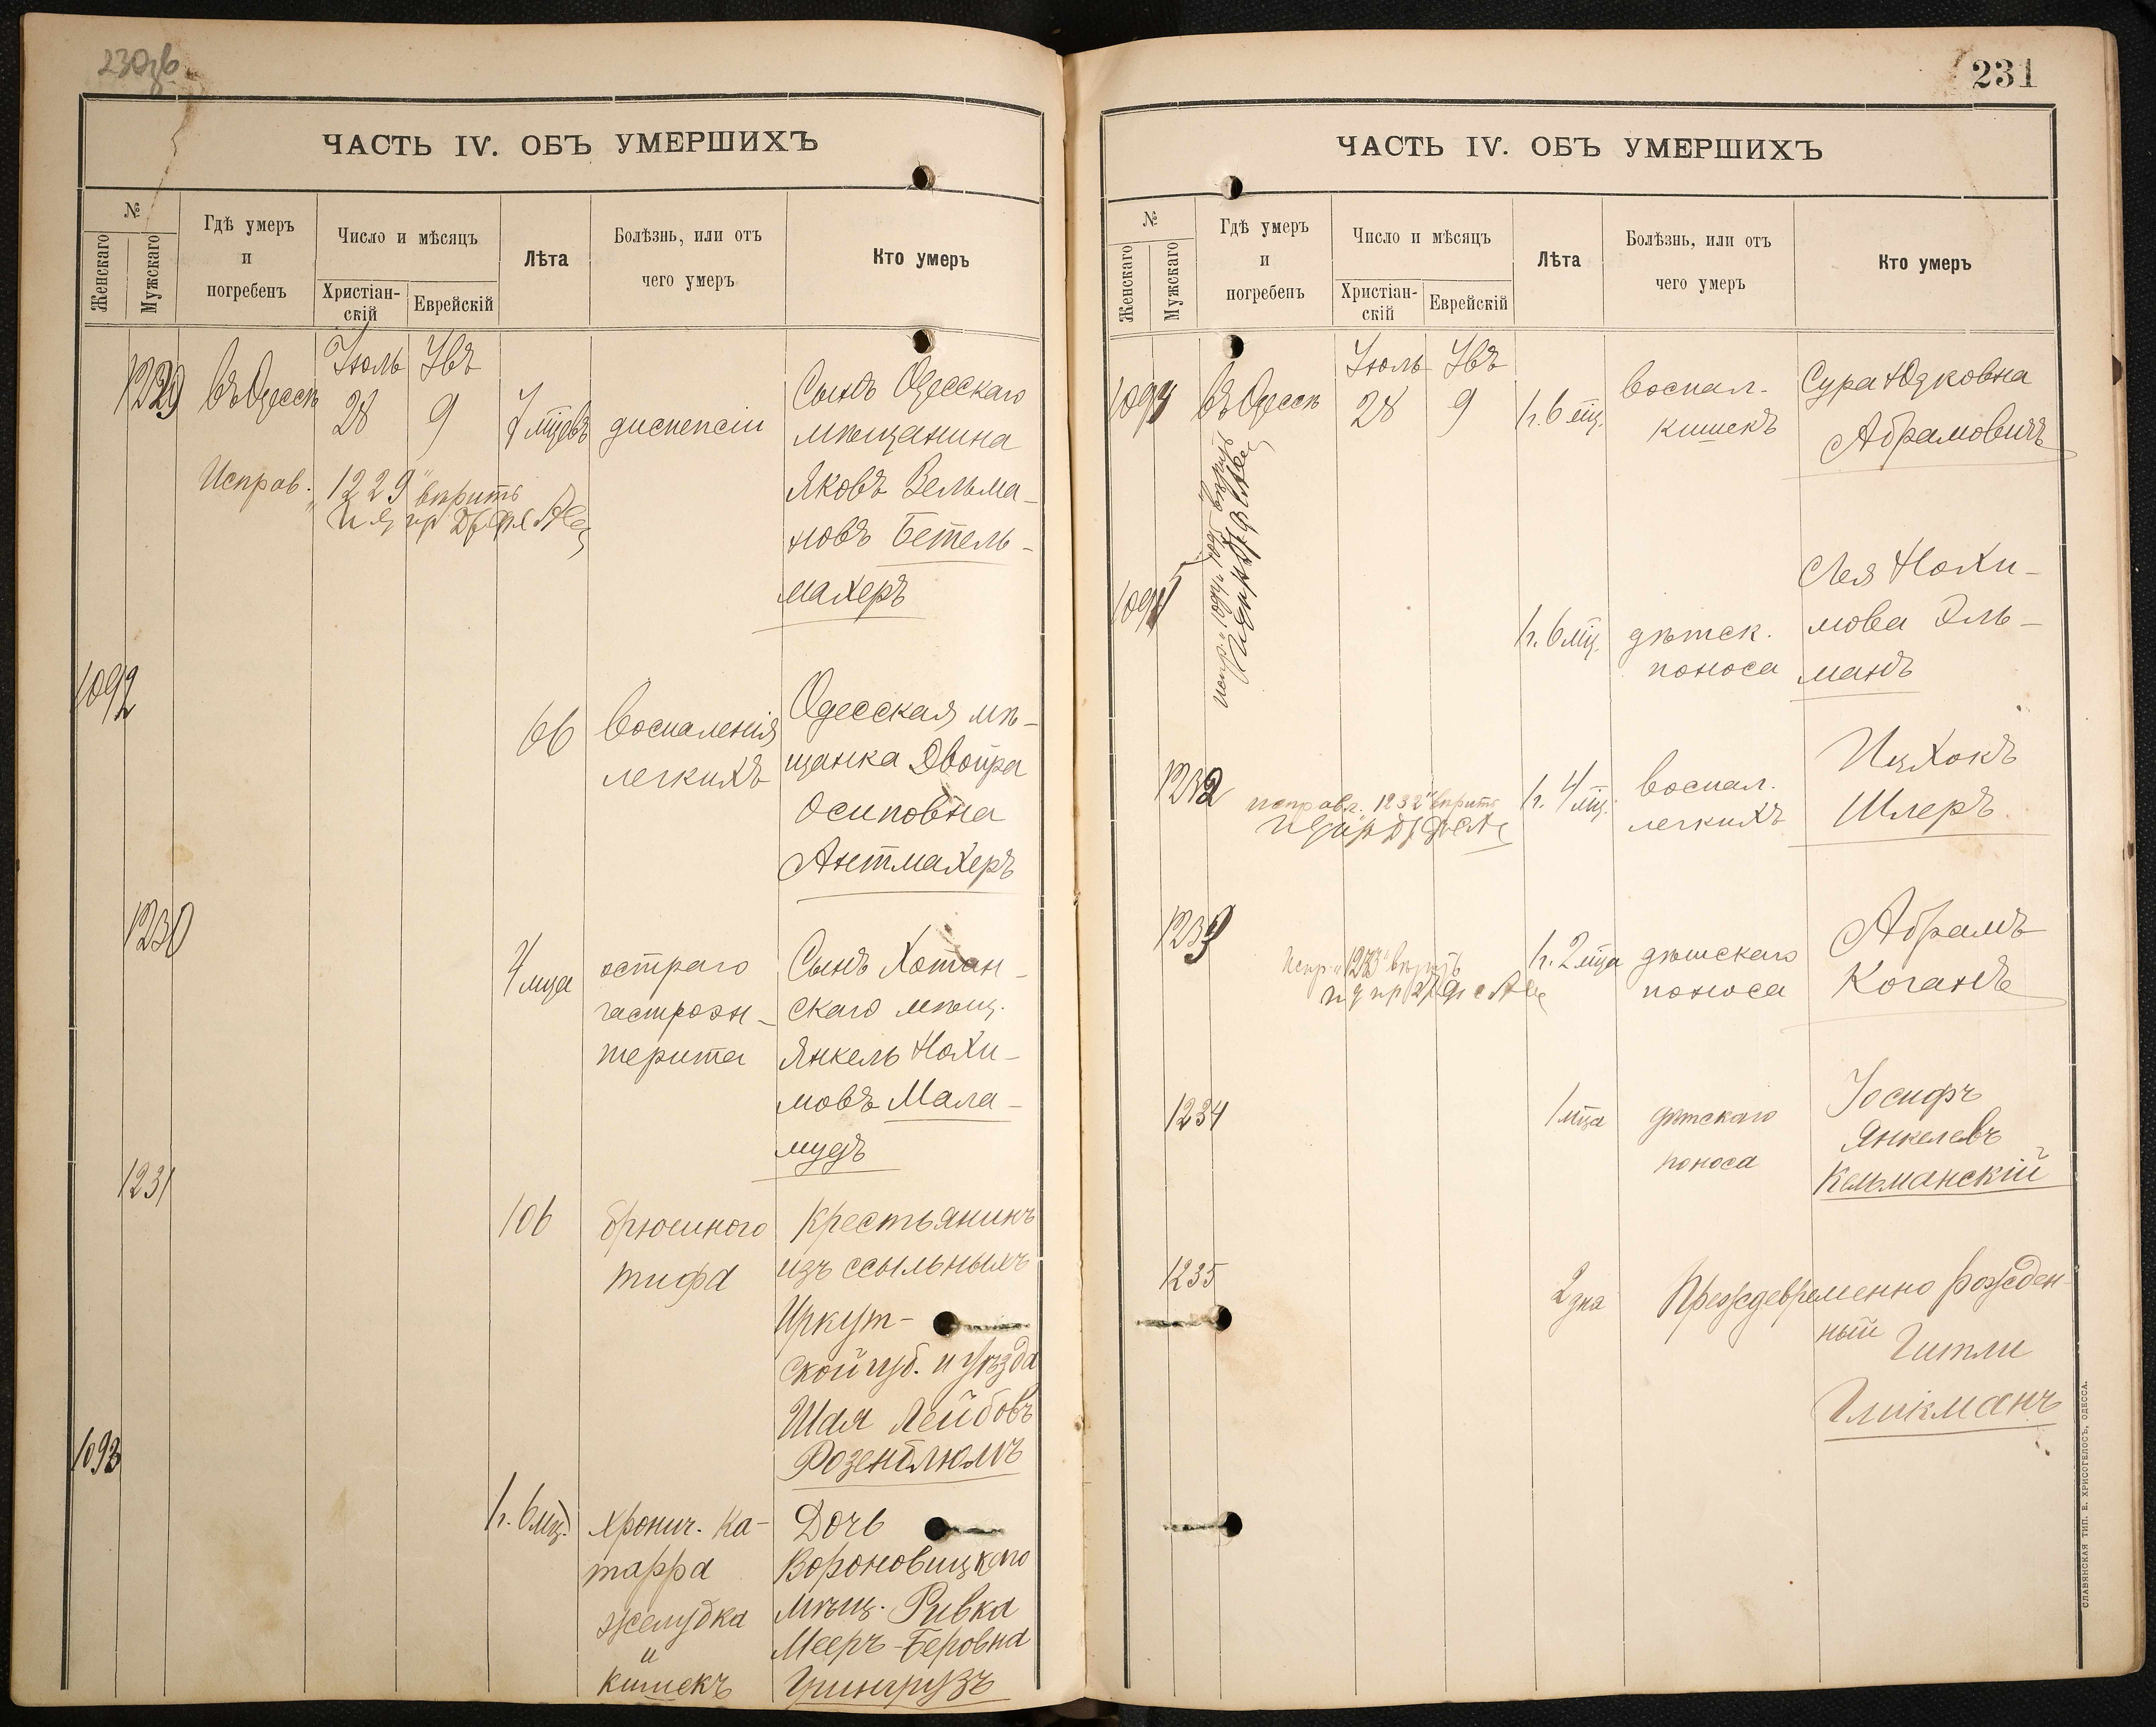 230об
ЧАСТЬ IV. ОБЪ УМЕРШИХЪ
№
Женскаго
Мужскаго
Гдѣ умеръ
и
погребенъ
Число и мѣсяцъ
Христіан-
скій
Еврейскій
Лѣта
Болѣзнь, или отъ
чего умеръ
Кто умеръ
Іюль
Увъ
1229
въ Одессѣ
28
9
7 мцевъ
диспепсіи
Сынъ Одесскаго
мѣщанина
Яковъ Зельма-
новъ Бетель-
махеръ
Исправ.
1229 вѣрить
1092
66
воспаленія
легкихъ
Одесская мѣ-
щанка Двойра
Осиповна
Антмахеръ
1230
4 мца
остраго
гастроэн-
терита
Сынъ Хотин-
скаго мѣщ.
Янкель Нохи-
мовъ Мала-
мудъ
1231
106
брюшного
тифа
Крестьянинъ
изъ ссыльныхъ
Иркут-
ской губ. и уѣзда
Шая Лейбовъ
Розенблюмъ
1093
1 г. 6 мц.
хронич. ка-
тарра
желудка
и
кишекъ
Дочь
Вороновицкаго
мѣщ. Ривка
Мееръ-Беровна
Грингрузъ
231
ЧАСТЬ IV. ОБЪ УМЕРШИХЪ
№
Женскаго
Мужскаго
Гдѣ умеръ
и
погребенъ
Число и мѣсяцъ
Христіан-
скій
Еврейскій
Лѣта
Болѣзнь, или отъ
чего умеръ
Кто умеръ
Іюль
Увъ
1094
въ Одессѣ
28
9
1 г. 6 мц.
воспал.
кишекъ
Сура Юдковна
Абрамовичъ
испр. 1094, 1095 вѣрить
1095
1 г. 6 мц.
дѣтск.
поноса
Лея Нохи-
мова Эль-
манъ
1232
исправл. 1232 вѣрить
1 г. 4 мц.
воспал.
легкихъ
Ицхокъ
Шлеръ
1233
Испр. 1233 вѣрить
1 г. 2 мца
дѣтскаго
поноса
Абрамъ
Коганъ
1234
1 мца
дѣтскаго
поноса
Іосифъ
Янкелевъ
Кельманскій
1235
2 дня
Преждевременно рожден-
ный Гитли
Гликманъ
СЛАВЯНСКАЯ ТИП. Е. ХРИСОГЕЛОСЪ, ОДЕССА.